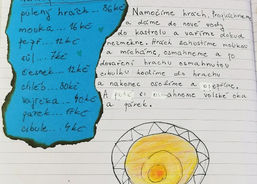 pulený hrách ... 36 kč
mouka ... 16 kč
pepř ... 12 kč
sůl ... 7 kč
česnek ... 12 kč
chléb ... 30 kč
vajíčka ... 40 kč
párek ... 17 kč
cibule ... 4 kč
Namočíme hrách. Propláchneme
a dáme do nové vody
do kastrolu a vaříme dokud
nezměkne. Hrách zahustíme moukou
a mícháme, osmahneme a po
dovaření hrachu osmahnutou
cibulku hodíme do hrachu
a nakonec osolíme a opepříme.
A osmahneme volské oka
a párek.